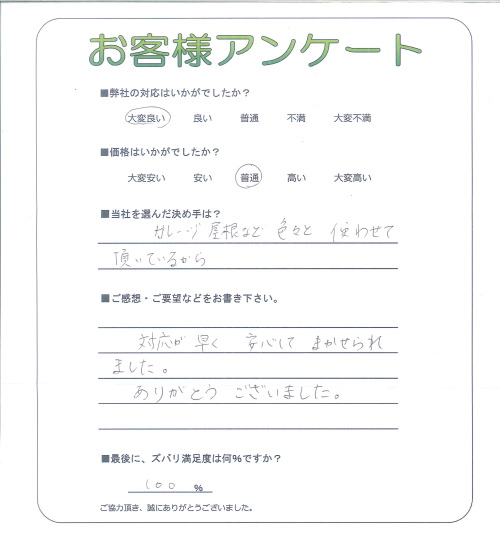 お客様アンケート
■弊社の対応はいかがでしたか？
大変良い 良い 普通 不満 大変不満
■価格はいかがでしたか？
大変安い 安い 普通 高い 大変高い
■当社を選んだ決め手は？
ガレージ屋根など 色々と 使わせて
頂いているから
■ご感想・ご要望などをお書き下さい。
対応が 早く 安心して まかせられ
ました。
ありがとう ございました。
■最後に、ズバリ満足度は何%ですか？
100 %
ご協力頂き、誠にありがとうございました。